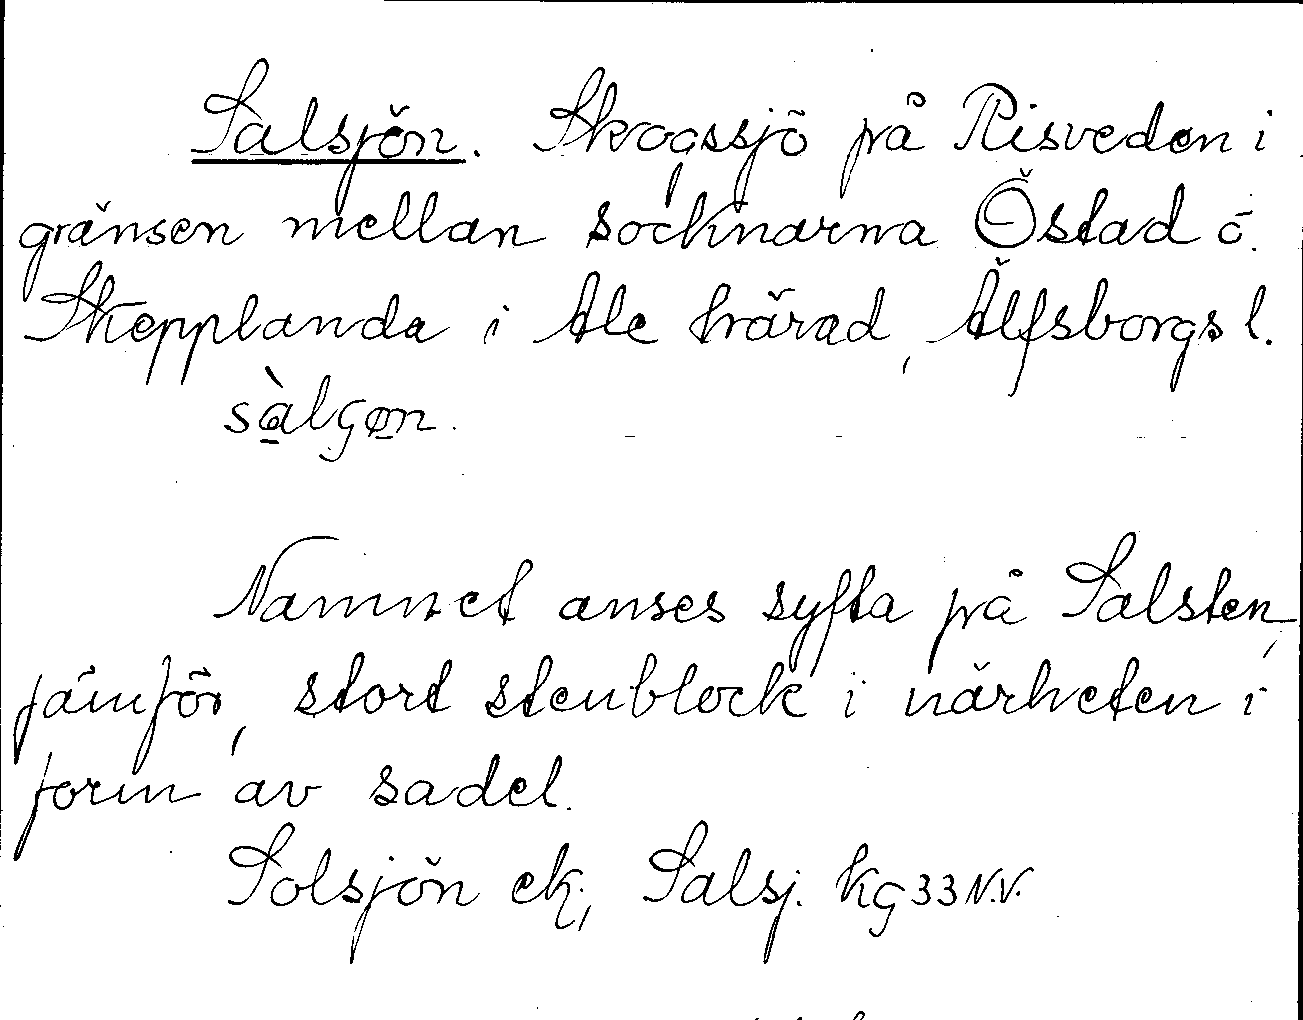 Salsjön. Skogssjö på Risveden i
gränsen mellan socknarna Östad o.
Skepplanda i Ale härad, Älfsborgs l.
sàlgøn.
Namnet anses syfta på Salsten,
jämför, stort stenblock i närheten i
form av sadel.
Solsjön ek; Salsj. kg 33 N.V.